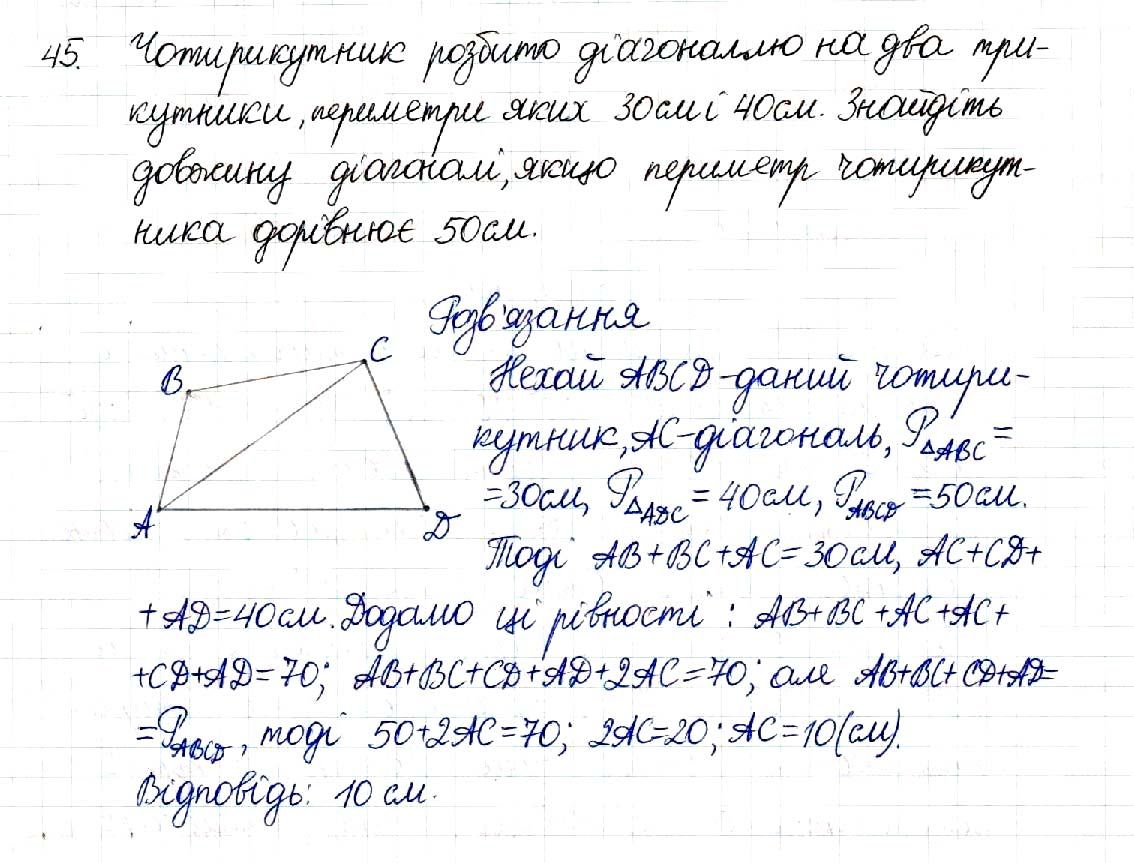 45. Чотирикутник розбито діагоналлю на два три-
кутники, периметри яких 30см і 40см. Знайдіть
довжину діагоналі, якщо периметр чотирикут-
ника дорівнює 50см.
Розв'язання
C
B
Нехай ABCD-даний чотири-
кутник, AC-діагональ, P△ABC =
=30см, P△ADC = 40см, PABCD =50см.
A
D
Тоді AB+BC+AC=30см, AC+CD+
+AD=40см. Додамо ці рівності: AB+BC+AC+AC+
+CD+AD=70; AB+BC+CD+AD+2AC=70; але AB+BC+CD+AD=
=PABCD, тоді 50+2AC=70; 2AC=20; AC=10(см).
Відповідь: 10 см.